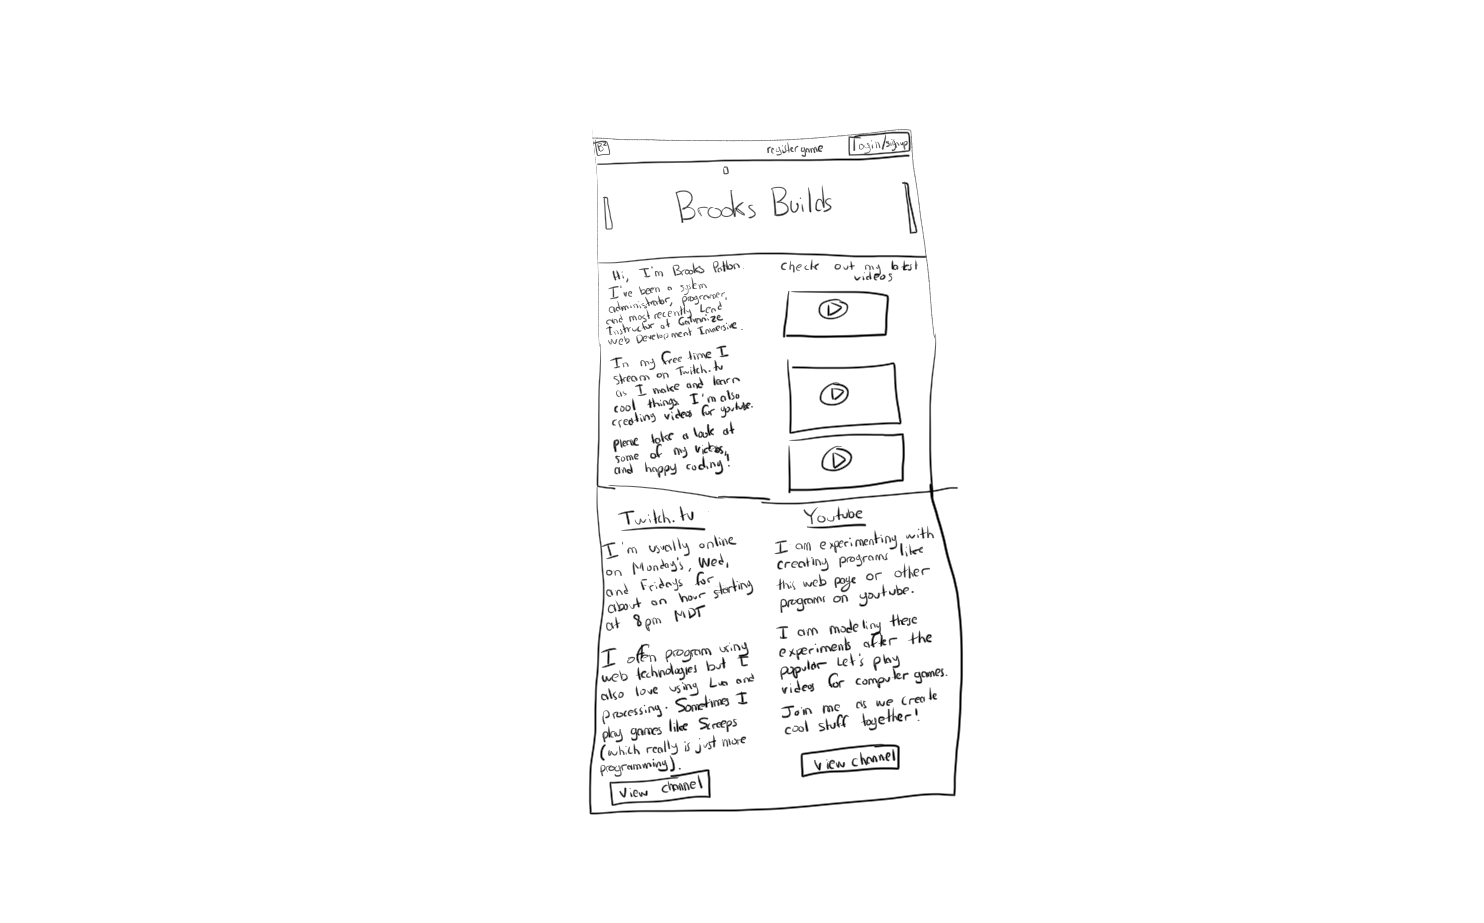 B²
register game
Login/signup
Brooks Builds
Hi, I'm Brooks Patton.
I've been a system
administrator, programer,
and most recently Lead
Instructor at Galvanize
Web Development Immersive.
In my free time I
stream on Twitch.tv
as I make and learn
cool things. I'm also
creating videos for youtube.
please take a look at
some of my videos,
and happy coding!
Check out my latest
videos
Twitch.tv
I'm usually online
on Monday's, Wed,
and Fridays for
about an hour starting
at 8pm MDT
I often program using
web technologies but I
also love using Lua and
processing. Sometimes I
play games like Screeps
(which really is just more
programming).
View channel
Youtube
I am experimenting with
creating programs like
this web page or other
programs on youtube.
I am modeling these
experiments after the
popular Let's play
videos for computer games.
Join me as we create
cool stuff together!
View channel